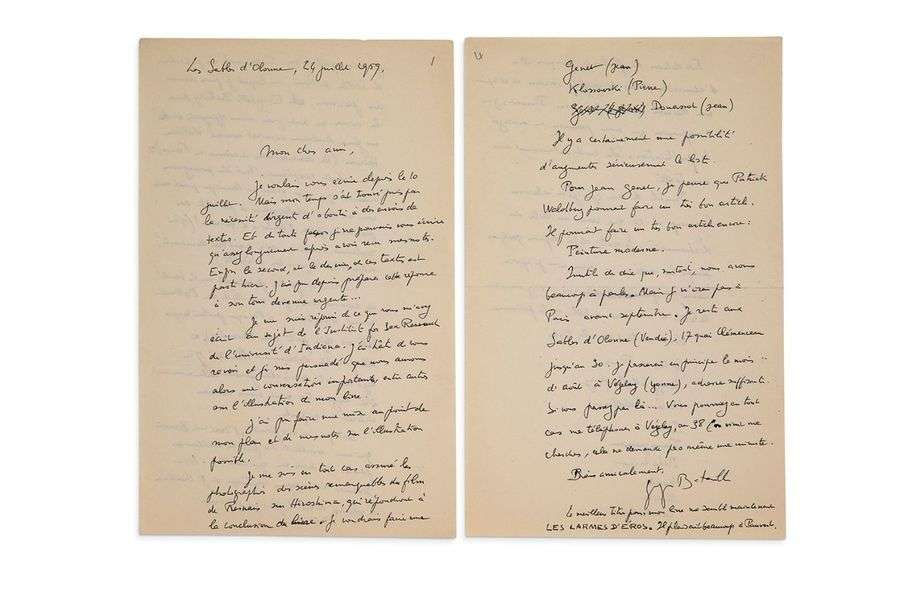 1
Les Sables d'Olonne, 24 juillet 1959.
Mon cher ami,
Je voulais vous écrire depuis le 10
juillet. Mais mon temps s'est trouvé pris par
la nécessité urgent d'aboutir à des envois de
textes. Et de toute façon je ne pouvais vous écrire
qu'assez longuement après avoir revu mes notes.
Enfin le second, et le dernier, de ces textes est
parti hier. J'ai pu depuis préparer cette réponse
à son tour devenue urgente...
Je me suis réjoui de ce que vous m'avez
écrit au sujet de l'Institut for Sex Research
de l'université d'Indiana. J'ai hâte de vous
revoir et je suis persuadé que nous aurons
alors une conversation importante, entre autres
sur l'illustration de mon livre.
J'ai pu faire une mise au point de
mon plan et de mes notes sur l'illustration
possible.
Je me suis en tout cas assuré les
photographies des scènes remarquables du film
de Resnais sur Hiroshima, qui répondront à
la conclusion du livre. Je voudrais faire une
Genet (Jean)
Klossowski (Pierre)
Douassot (Jean)
Il y a certainement une possibilité
d'augmenter sérieusement la liste.
Pour Jean Genet, je pense que Patrick
Waldberg pourrait faire un très bon article.
Il pourrait faire un très bon article encore:
Peinture moderne.
Inutile de dire que, surtout, nous avons
beaucoup à parler. Mais je n'irai pas à
Paris avant septembre. Je reste aux
Sables d'Olonne (Vendée), 17 quai Clémenceau
jusqu'au 30. Je passerai en principe le mois
d'août à Vézelay (Yonne), adresse suffisante.
Si vous passez par là... Vous pouvez en tout
cas me téléphoner à Vézelay, au 38 (on vient me
chercher, cela ne demande pas même une minute.
Bien amicalement.
Georges Bataille
Le meilleur titre pour mon livre me semble maintenant
LES LARMES D'EROS. Il plaisait beaucoup à Pauvert.